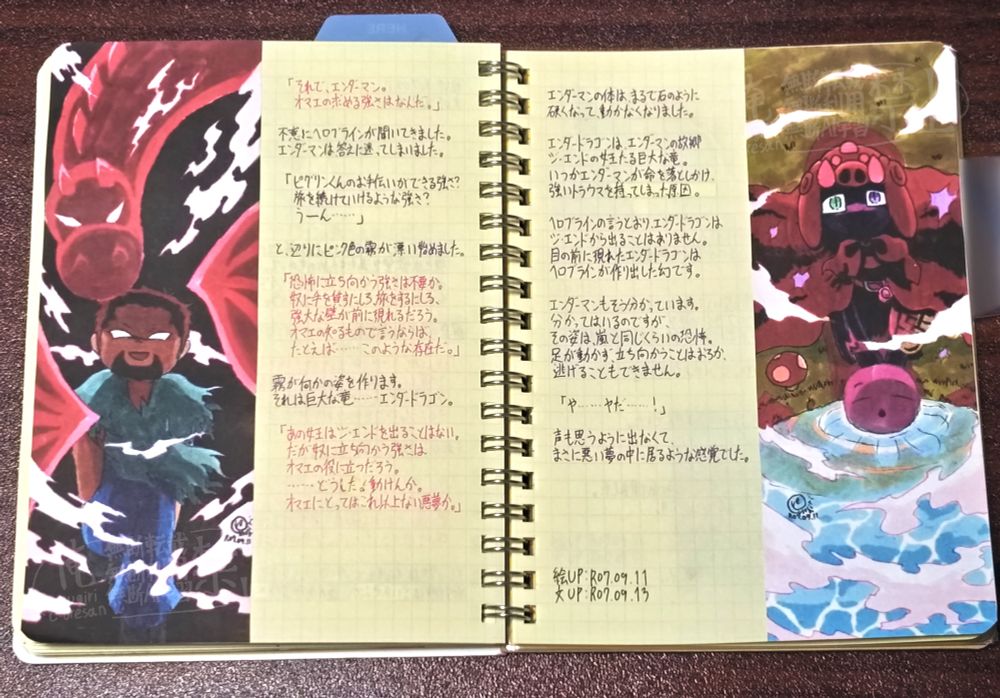 HERE
「それで、エンダーマン。
オマエの求める強さはなんだ。」
不意にヘロブラインが聞いてきました。
エンダーマンは答えに迷ってしまいました。
「ピグリンくんのお手伝いができる強さ?
旅を続けていけるような強さ?
うーん……」
と、辺りにピンク色の霧が漂い始めました。
「恐怖に立ち向かう強さは不要か。
奴に手を貸すにしろ、旅をするにしろ、
強大な壁が前に現れるだろう。
オマエの知るもので言うならば、
たとえば……このような存在だ。」
霧が何かの姿を作ります。
それは巨大な竜……エンダードラゴン。
「あの女王はジ・エンドを出ることはない。
だが奴に立ち向かう強さは
オマエの役に立つだろう。
……どうした、動けんか。
オマエにとってはこれ以上ない悪夢か。」
R07.09.11
エンダーマンの体は、まるで石のように
硬くなって、動かなくなりました。
エンダードラゴンは、エンダーマンの故郷
ジ・エンドの女王たる巨大な竜。
いつかエンダーマンが命を落としかけ、
強いトラウマを持ってしまった原因。
ヘロブラインの言うとおり、エンダードラゴンは
ジ・エンドから出ることはありません。
目の前に現れたエンダードラゴンは
ヘロブラインが作り出した幻です。
エンダーマンもそう分かっています。
分かってはいるのですが、
その姿は、嵐と同じくらいの恐怖。
足が動かず、立ち向かうことはおろか、
逃げることもできません。
「や……やだ……!」
声も思うように出なくて、
まさに悪い夢の中に居るような感覚でした。
絵UP:R07.09.11
文UP:R07.09.13
R07.09.11